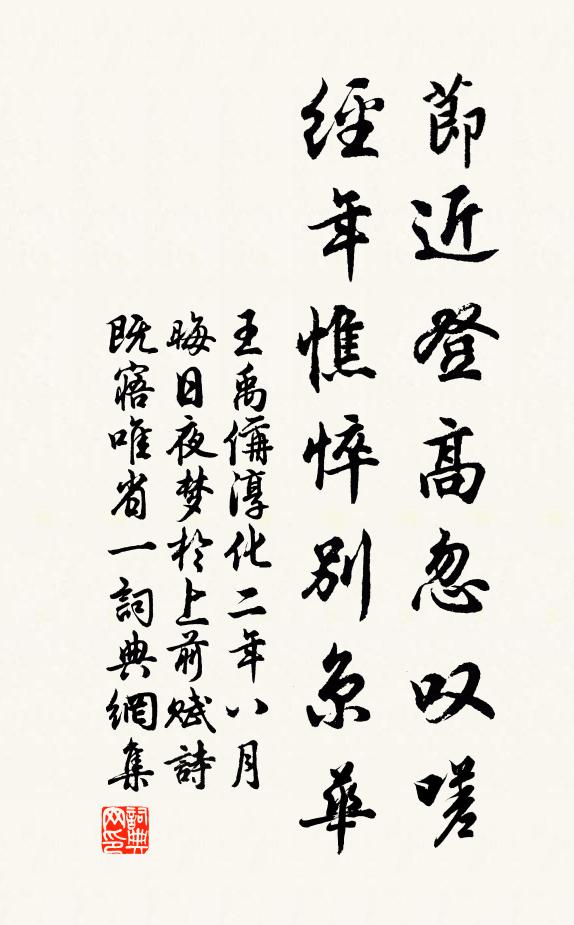 節近登高忽叹嗟
經年憔悴别京華
王禹偁淳化二年八月
晦日夜梦於上前赋詩
既寤唯省一詞典網集
詞典网印